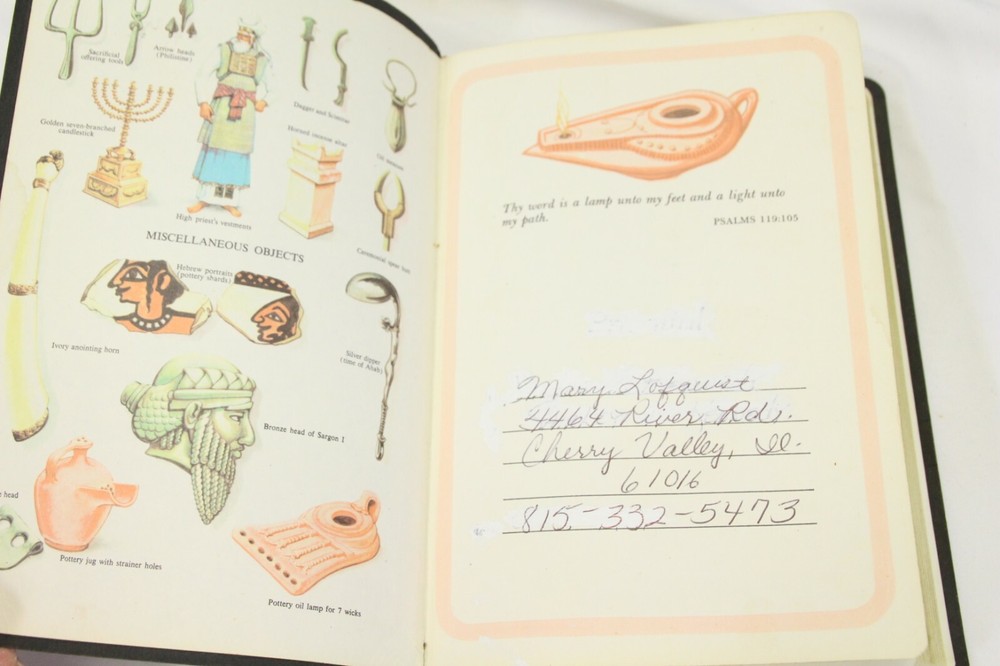 Sacrificial
offering tools
Arrow heads
(Philistine)
Dagger and Scimitar
Golden seven-branched
candlestick
Horned incense altar
High priest's vestments
Ceremonial spear
MISCELLANEOUS OBJECTS
Hebrew portraits
(pottery shards)
Ivory anointing horn
Silver dipper
(time of Ahab)
Bronze head of Sargon I
head
Pottery jug with strainer holes
Pottery oil lamp for 7 wicks
Thy word is a lamp unto my feet and a light unto
my path.
PSALMS 119:105
Mary Lofquist
4464 River Rd.
Cherry Valley, Il.
61016
815-332-5473